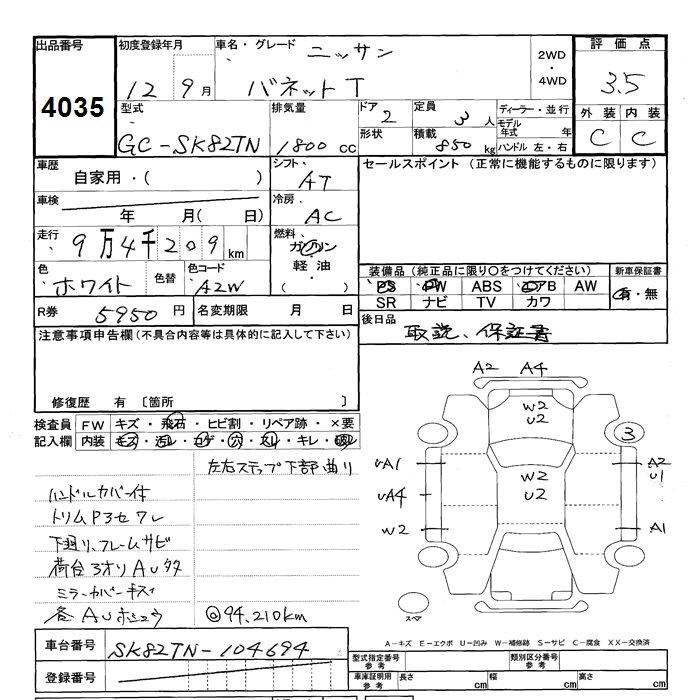 出品番号 初度登録年月 車名・グレード ニッサン 2WD 評価点
4035 12年 9月 バネットT 4WD 3.5
型式 排気量 ドア 2 定員 3人 ディーラー・並行 外装 内装
GC-SK82TN 1800cc 形状 積載 850kg モデル年式 年 ハンドル 左・右 C C
車歴 自家用・( ) シフト AT セールスポイント (正常に機能するものに限ります)
車検 年 月( 日) 冷房 AC
走行 9万4千209km 燃料 ガソリン・軽油・( )
色 ホワイト 色替 色コード A2W
装備品 (純正品に限り○をつけてください) 新車保証書
PS PW ABS エアB AW 有・無
SR ナビ TV カワ
R券 5950円 名変期限 月 日 後日品 取説、保証書
注意事項申告欄(不具合内容等は具体的に記入して下さい)
修復歴 有 〔箇所 〕
検査員 FW キズ・飛石・ヒビ割・リペア跡・×要
記入欄 内装 キズ・汚レ・コゲ・穴・スレ・キレ・
左右ステップ下部曲り
ハンドルカバー付
トリムP3セワレ
下廻り、フレームサビ
荷台3オリAUタタ
ミラーカバーキズ
各AUホシュウ @94,210km
A2 A4
W2
U2
3
UA1 W2 A2
U2 U1
UA4
W2 A1
スペア
A-キズ E-エクボ U-凹み W-補修跡 S-サビ C-腐食 XX-交換済
車台番号 SK82TN-104694
登録番号
型式指定番号 参考 類別区分番号 参考
車庫証明用 参考 長さ cm 幅 cm 高さ cm